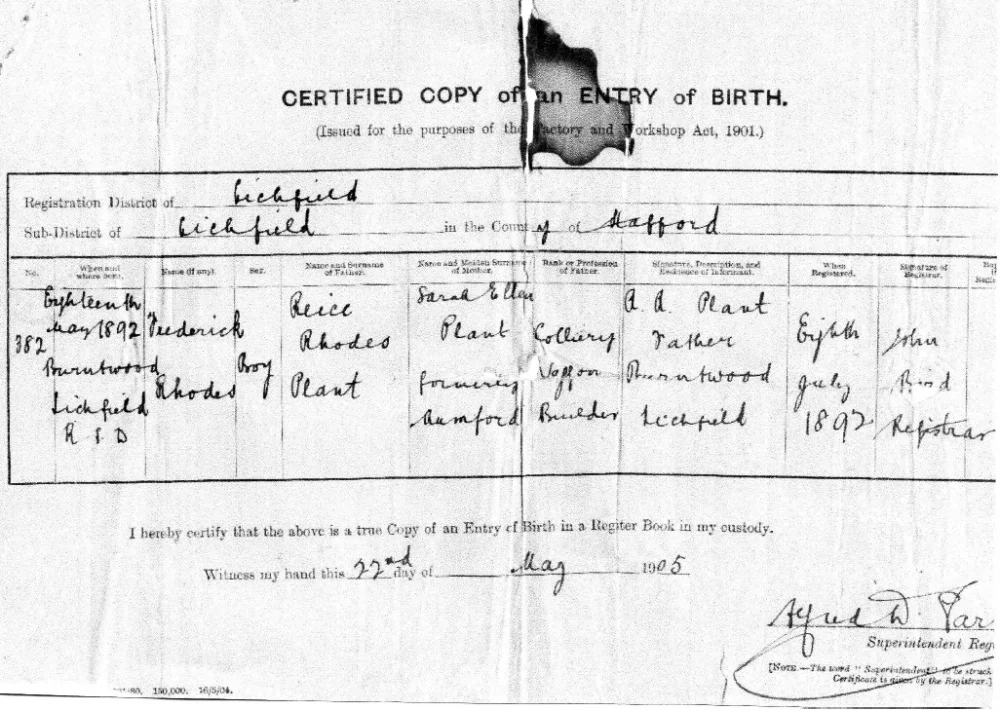 CERTIFIED COPY of an ENTRY of BIRTH.
(Issued for the purposes of the Factory and Workshop Act, 1901.)
Registration District of Lichfield
Sub-District of Lichfield in the County of Stafford
No. When and where born. Name (if any). Sex. Name and Surname of Father. Name and Maiden Surname of Mother. Rank or Profession of Father. Signature, Description, and Residence of Informant. When Registered. Signature of Registrar.
382
Eighteenth
May 1892
Burntwood
Lichfield
R S D
Frederick
Rhodes
Boy
Reice
Rhodes
Plant
Sarah Ellen
Plant
formerly
Mumford
Colliery
Waggon
Builder
R. R. Plant
Father
Burntwood
Lichfield
Eighth
July
1892
John
Bird
Registrar
I hereby certify that the above is a true Copy of an Entry of Birth in a Regiter Book in my custody.
Witness my hand this 22nd day of May 1905
Alfred W. Par
Superintendent Reg
[NOTE.—The word "Superintendent" to be struck
Certificate is given by the Registrar.]
150,000. 16/5/04.